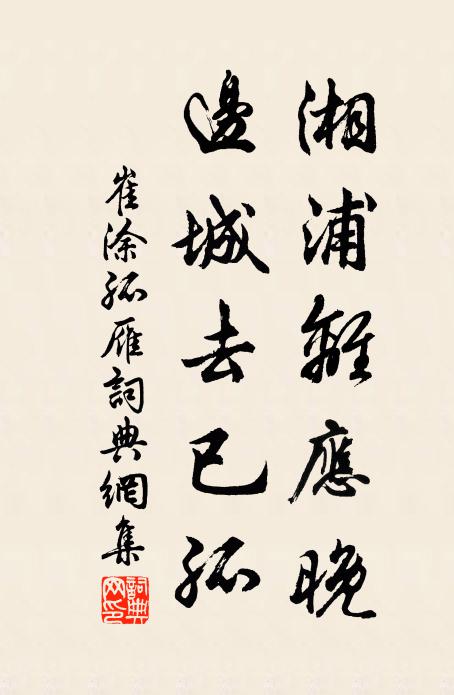 湘浦離應晚
邊城去已孤
崔涂孤雁詞典網集
詞典網印